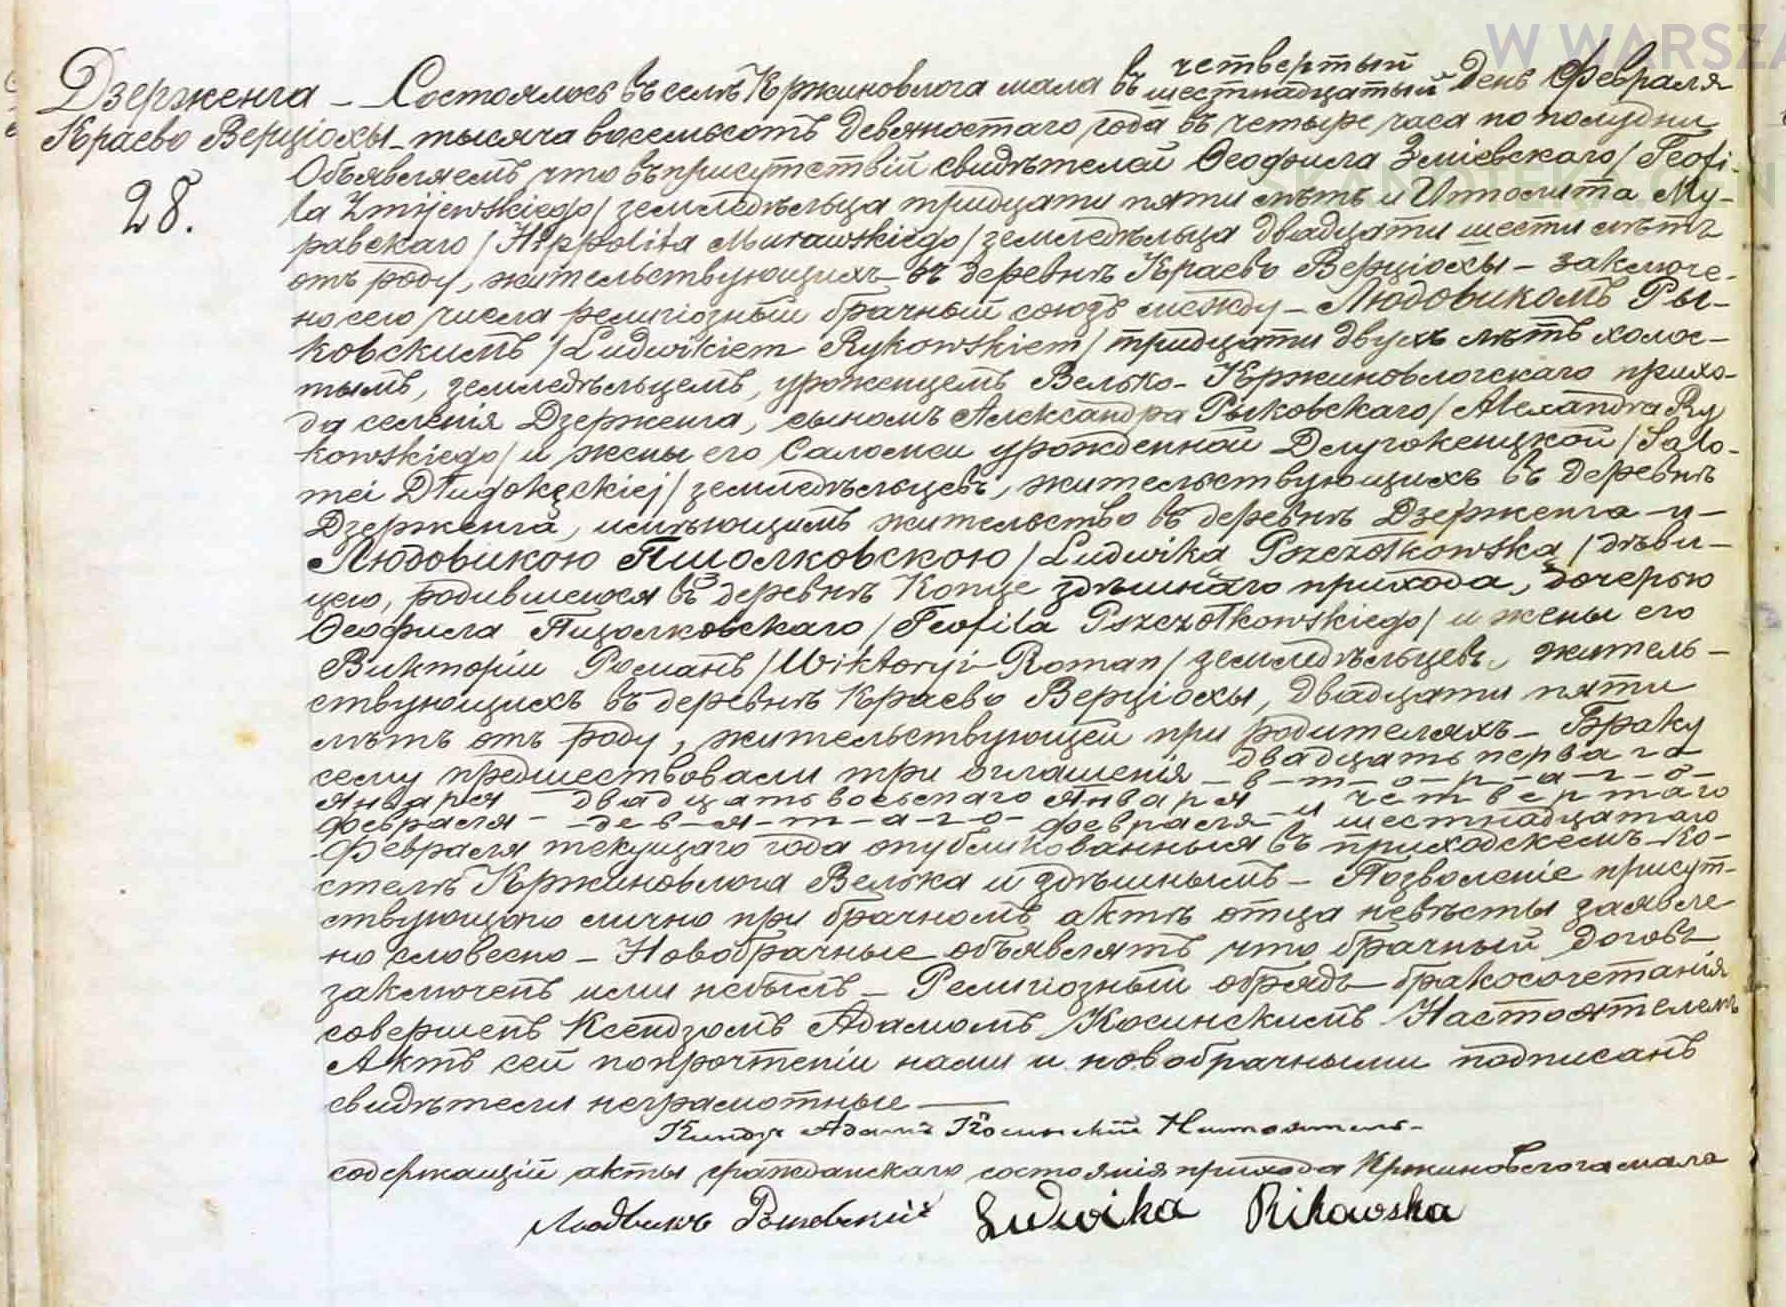 W WARSZA
SKANOTEKA.GEN
Дзерженга – – Состоялось въ селѣ Кржиновлога мала въ четвертый
шестнадцатый день Февраля
Краево Верціохы – тысяча восемьсотъ девяностаго года въ четыре часа по полудни
28.
Объявляемъ что въ присутствіи свидѣтелей Ѳеофила Зміевскаго / Teofi-
la Żmijewskiego / земледѣльца тридцати пяти лѣтъ и Ипполита Му-
равскаго / Hippolita Murawskiego / земледѣльца двадцати шести лѣтъ
отъ роду, жительствующихъ въ деревнѣ Краево Верціохы – заключе-
но сего числа религіозный брачный союзъ между – Людовикомъ Ры-
ковскимъ / Ludwikiem Rykowskiem / тридцати двухъ лѣтъ холос-
тымъ, земледѣльцемъ, уроженцемъ Велько-Кржиновлогскаго прихо-
да селенія Дзерженга, сыномъ Александра Рыковскаго / Alexandra Ry
kowskiego / и жены его Саломеи урожденной Длугокенцкой / Salo-
mei Długokęckiej / земледѣльцевъ, жительствующихъ въ деревнѣ
Дзерженга, имѣющимъ жительство въ деревнѣ Дзерженга – и –
Людовикою Пщолковскою / Ludwiką Pszczółkowską / дѣви-
цею, родившеюся въ деревнѣ Конце здѣшняго прихода, дочерью
Ѳеофила Пщолковскаго / Teofila Pszczółkowskiego / и жены его
Викторіи Романъ / Wiktoryi Roman / земледѣльцевъ, житель-
ствующихъ въ деревнѣ Краево Верціохы, двадцати пяти
лѣтъ отъ роду, жительствующей при родителяхъ – Браку
сему предшествовали три оглашенія двадцать перваго
– в – т – о – р – а – г – о –
Января двадцать восьмаго Января и четвертаго
Февраля – – д е в – я – т – а – г о – Февраля – и шестнадцатаго
Февраля текущаго года опубликованныя въ приходскемъ ко-
стелѣ Кржиновлога Велька и здѣшнымъ – Позволеніе присут-
ствующаго лично при брачномъ актѣ отца невѣсты заявле
но словесно – Новобрачные объявлятъ что брачный договъ
заключенъ ими небылъ – Религіозный обрядъ бракосочетанія
совершенъ Ксендзомъ Адамомъ Косинскимъ Настоятелемъ
Актъ сей попрочтеніи нами и новобрачными подписанъ
свидѣтели неграмотные ——
Ксендзъ Адамъ Косинскій Настоятель –
содержащій акты гражданскаго состоянія прихода Кржиновлога мала
Людвикъ Рыковскій Ludwika Rikowska